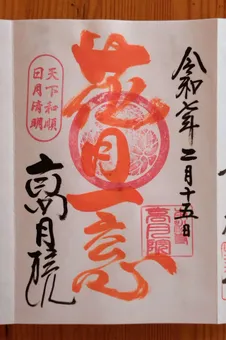 令和七年二月十五日
花月一窓
天下和順
日月清明
高月院